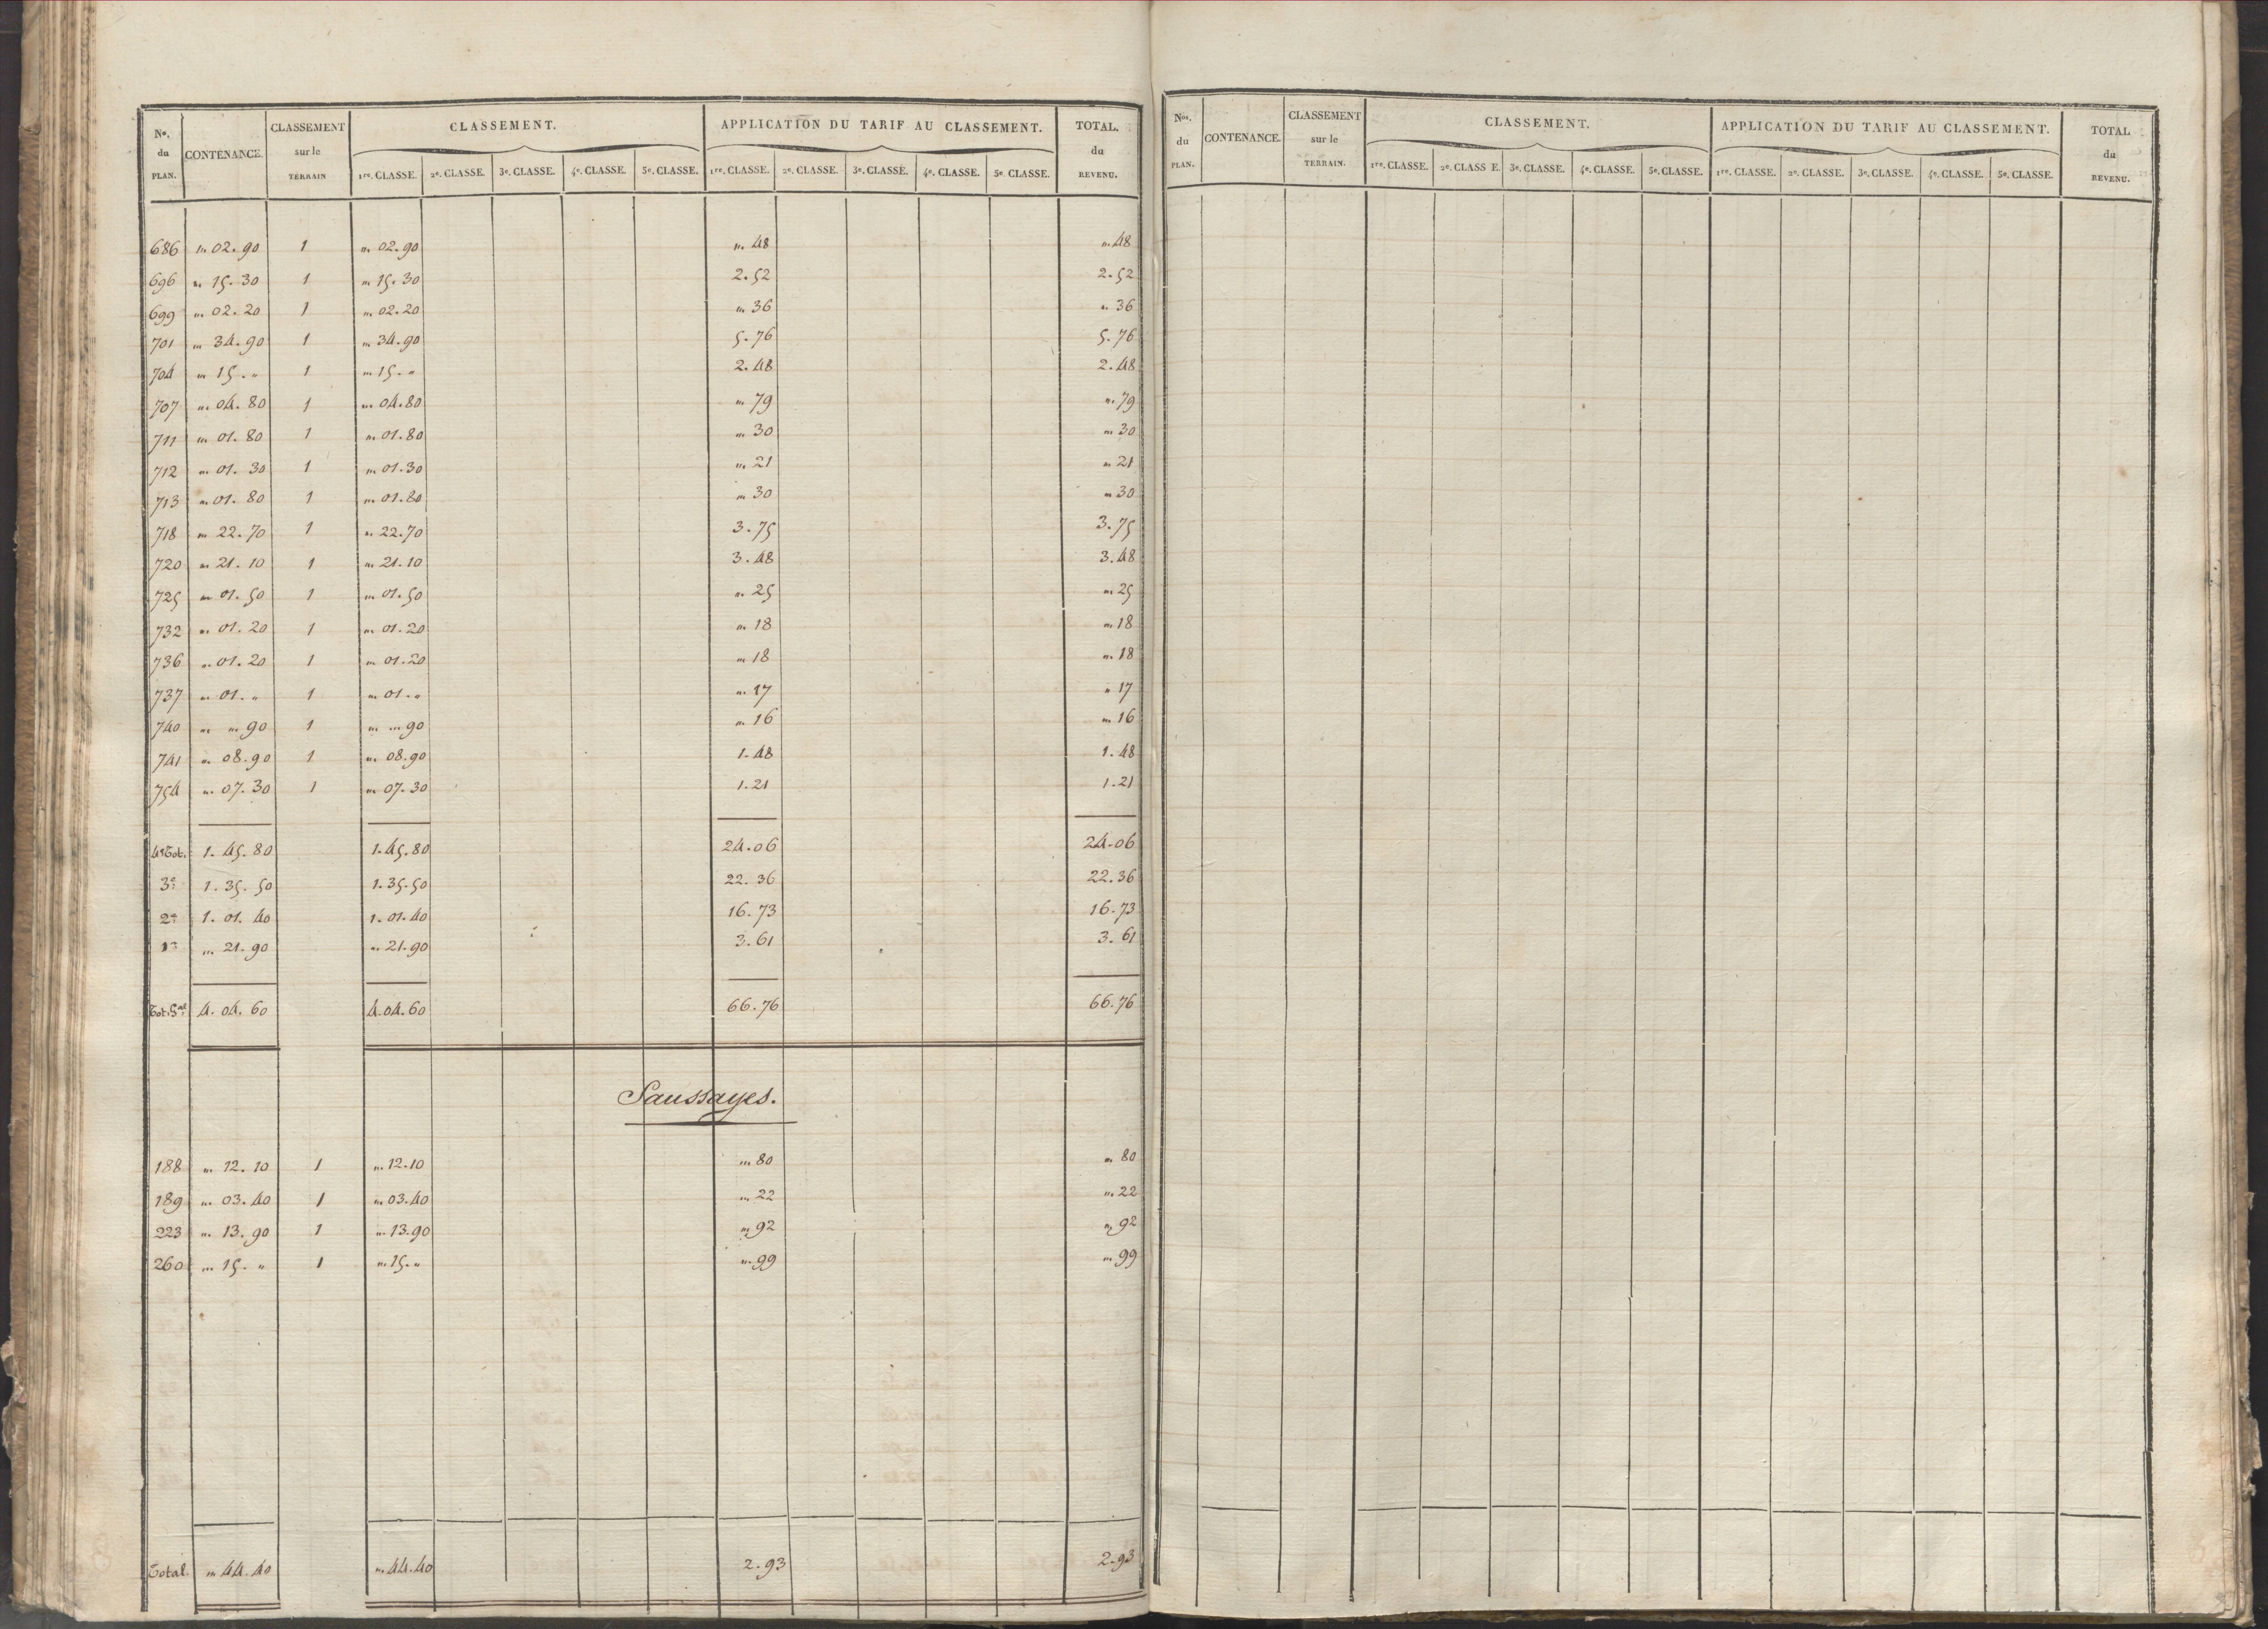 No. du PLAN. CONTENANCE. CLASSEMENT sur le TERRAIN CLASSEMENT. APPLICATION DU TARIF AU CLASSEMENT. TOTAL. du REVENU.
1re. CLASSE. 2e. CLASSE. 3e. CLASSE. 4e. CLASSE. 5e. CLASSE. 1re. CLASSE. 2e. CLASSE. 3e. CLASSE. 4e. CLASSE. 5e. CLASSE.
686 „ 02. 90 1 „ 02. 90 „ 48 „ 48
696 „ 15. 30 1 „ 15. 30 2. 52 2. 52
699 „ 02. 20 1 „ 02. 20 „ 36 „ 36
701 „ 34. 90 1 „ 34. 90 5. 76 5. 76
704 „ 15. „ 1 „ 15. „ 2. 48 2. 48
707 „ 04. 80 1 „ 04. 80 „ 79 „ 79
711 „ 01. 80 1 „ 01. 80 „ 30 „ 30
712 „ 01. 30 1 „ 01. 30 „ 21 „ 21
713 „ 01. 80 1 „ 01. 80 „ 30 „ 30
718 „ 22. 70 1 „ 22. 70 3. 75 3. 75
720 „ 21. 10 1 „ 21. 10 3. 48 3. 48
725 „ 01. 50 1 „ 01. 50 „ 25 „ 25
732 „ 01. 20 1 „ 01. 20 „ 18 „ 18
736 „ 01. 20 1 „ 01. 20 „ 18 „ 18
737 „ 01. „ 1 „ 01. „ „ 17 „ 17
740 „ „ 90 1 „ „ 90 „ 16 „ 16
741 „ 08. 90 1 „ 08. 90 1. 48 1. 48
754 „ 07. 30 1 „ 07. 30 1. 21 1. 21
4e Tot. 1. 45. 80 1. 45. 80 24. 06 24. 06
3e 1. 35. 50 1. 35. 50 22. 36 22. 36
2e 1. 01. 40 1. 01. 40 16. 73 16. 73
1r „ 21. 90 „ 21. 90 3. 61 3. 61
Tot. Gal 4. 04. 60 4. 04. 60 66. 76 66. 76
Saussayes.
188 „ 12. 10 1 „ 12. 10 „ 80 „ 80
189 „ 03. 40 1 „ 03. 40 „ 22 „ 22
223 „ 13. 90 1 „ 13. 90 „ 92 „ 92
260 „ 15. „ 1 „ 15. „ „ 99 „ 99
Total. „ 44. 40 „ 44. 40 2. 93 2. 93
Nos. du PLAN. CONTENANCE. CLASSEMENT sur le TERRAIN. CLASSEMENT. APPLICATION DU TARIF AU CLASSEMENT. TOTAL du REVENU.
1re. CLASSE. 2e. CLASS E. 3e. CLASSE. 4e. CLASSE. 5e. CLASSE. 1re. CLASSE. 2e. CLASSE. 3e. CLASSE. 4e. CLASSE. 5e. CLASSE.